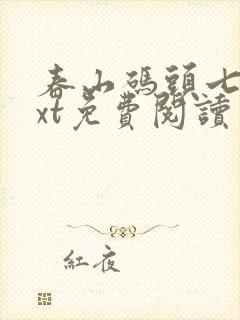 春山碼頭七
xt免費閱讀
紅夜